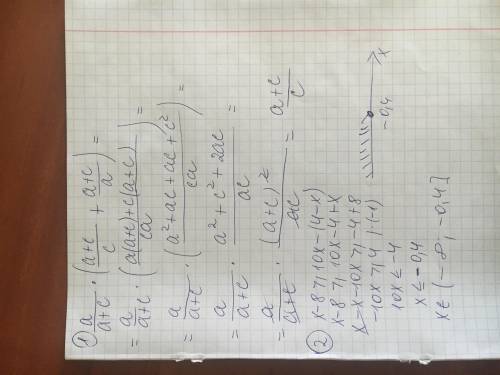 1) a/(a+c) · ((a+c)/c + (a+c)/a) =
= a/(a+c) · ((a(a+c)+c(a+c))/ca) =
= a/(a+c) · ((a²+ac+ac+c²)/ca) =
= a/(a+c) · (a²+c²+2ac)/ac =
= a/(a+c) · (a+c)²/ac = (a+c)/c
2) x-8 ≥ 10x-(4-x)
x-8 ≥ 10x-4+x
x-x-10x ≥ -4+8
-10x ≥ 4 | :(-1)
10x ≤ -4
x ≤ -0,4
x ∈ (-∞; -0,4]
-0,4
x